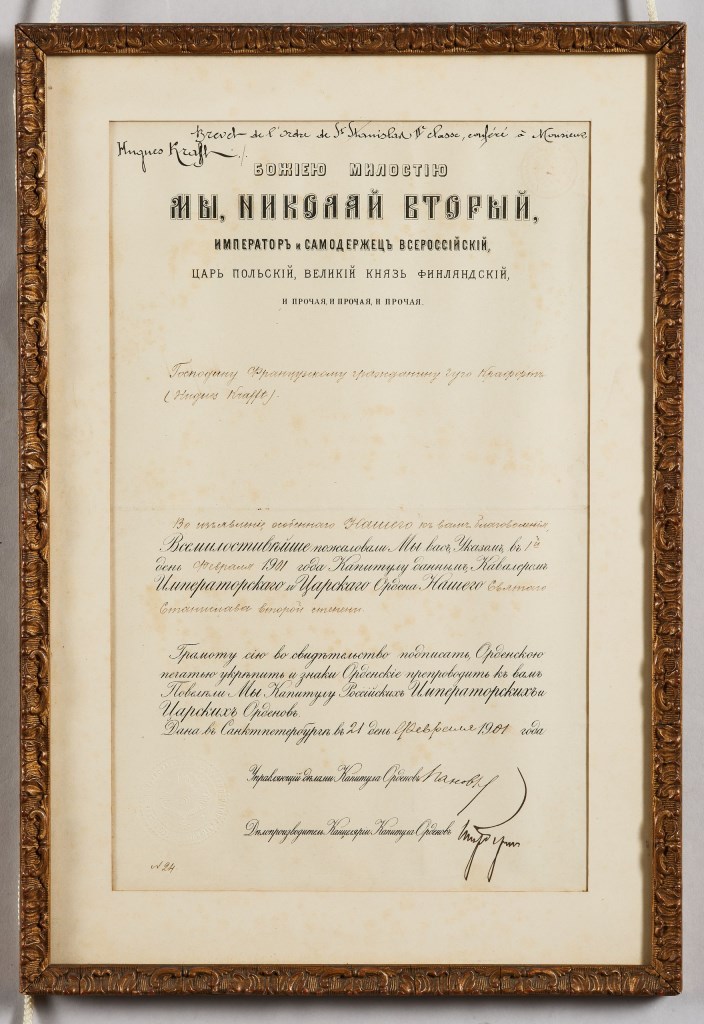 Brevet de l'ordre de St Stanislas IIe classe, conféré à Monsieur
Hugues Krafft ./.
БОЖІЕЮ МИЛОСТІЮ
МЫ, НИКОЛАЙ ВТОРЫЙ,
ИМПЕРАТОРЪ и САМОДЕРЖЕЦЪ ВСЕРОССІЙСКІЙ,
ЦАРЬ ПОЛЬСКІЙ, ВЕЛИКІЙ КНЯЗЬ ФИНЛЯНДСКІЙ,
И ПРОЧАЯ, И ПРОЧАЯ, И ПРОЧАЯ.
Господину Французскому гражданину Гуго Краффтъ
(Hugues Krafft).
Во изъявленіе особеннаго Нашего къ вамъ благоволенія,
Всемилостивѣйше пожаловали Мы васъ, Указомъ, въ 1й
день Февраля 1901 года Капитулу даннымъ, Кавалеромъ
Императорскаго и Царскаго Ордена Нашего Святаго
Станислава второй степени.
Грамоту сію во свидѣтельство подписать, Орденскою
печатью укрѣпить и знаки Орденскіе препроводить къ вамъ
Повелѣли Мы Капитулу Россійскихъ Императорскихъ и
Царскихъ Орденовъ.
Дана въ Санктпетербургѣ въ 21 день Февраля 1901 года
Управляющій дѣлами Капитула Орденовъ Пановъ
Дѣлопроизводитель Канцеляріи Капитула Орденовъ
№ 24